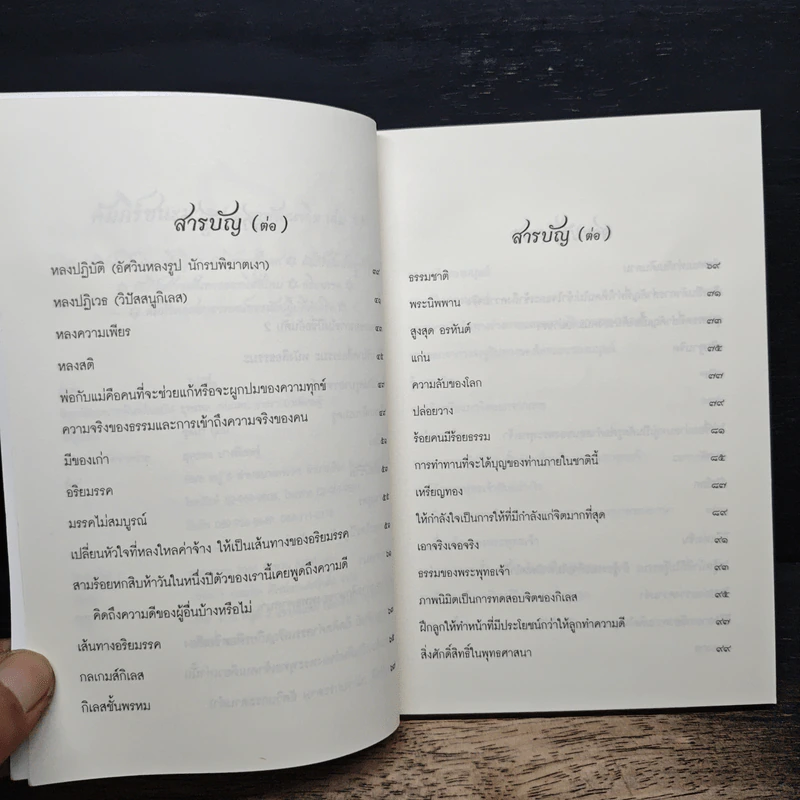 สารบัญ (ต่อ)
หลงปฏิบัติ (อัศวินหลงรูป นักรบพิฆาตเงา)
หลงปฏิเวธ (วิปัสสนูกิเลส)
หลงความเพียร
หลงสติ
พ่อกับแม่คือคนที่จะช่วยแก้หรือจะผูกปมของความทุกข์
ความจริงของธรรมและการเข้าถึงความจริงของคน
มีของเก่า
อริยมรรค
มรรคไม่สมบูรณ์
เปลี่ยนหัวใจที่หลงใหลค่าจ้าง ให้เป็นเส้นทางของอริยมรรค
สามร้อยหกสิบห้าวันในหนึ่งปีตัวของเรานี้เคยพูดถึงความดี
คิดถึงความดีของผู้อื่นบ้างหรือไม่
เส้นทางอริยมรรค
กลเกมส์กิเลส
กิเลสชั้นพรหม
สารบัญ (ต่อ)
ธรรมชาติ ๖๙
พระนิพพาน ๗๑
สูงสุด อรหันต์ ๗๓
แก่น ๗๕
ความลับของโลก ๗๗
ปล่อยวาง ๗๙
ร้อยคนมีร้อยธรรม ๘๑
การทำทานที่จะได้บุญของท่านภายในชาตินี้ ๘๕
เหรียญทอง ๘๗
ให้กำลังใจเป็นการให้ที่มีกำลังแก่จิตมากที่สุด ๘๙
เอาจริงเจอจริง ๙๑
ธรรมของพระพุทธเจ้า ๙๓
ภาพนิมิตเป็นการทดสอบจิตของกิเลส ๙๕
ฝึกลูกให้ทำหน้าที่มีประโยชน์กว่าให้ลูกทำความดี ๙๗
สิ่งศักดิ์สิทธิ์ในพุทธศาสนา ๙๙